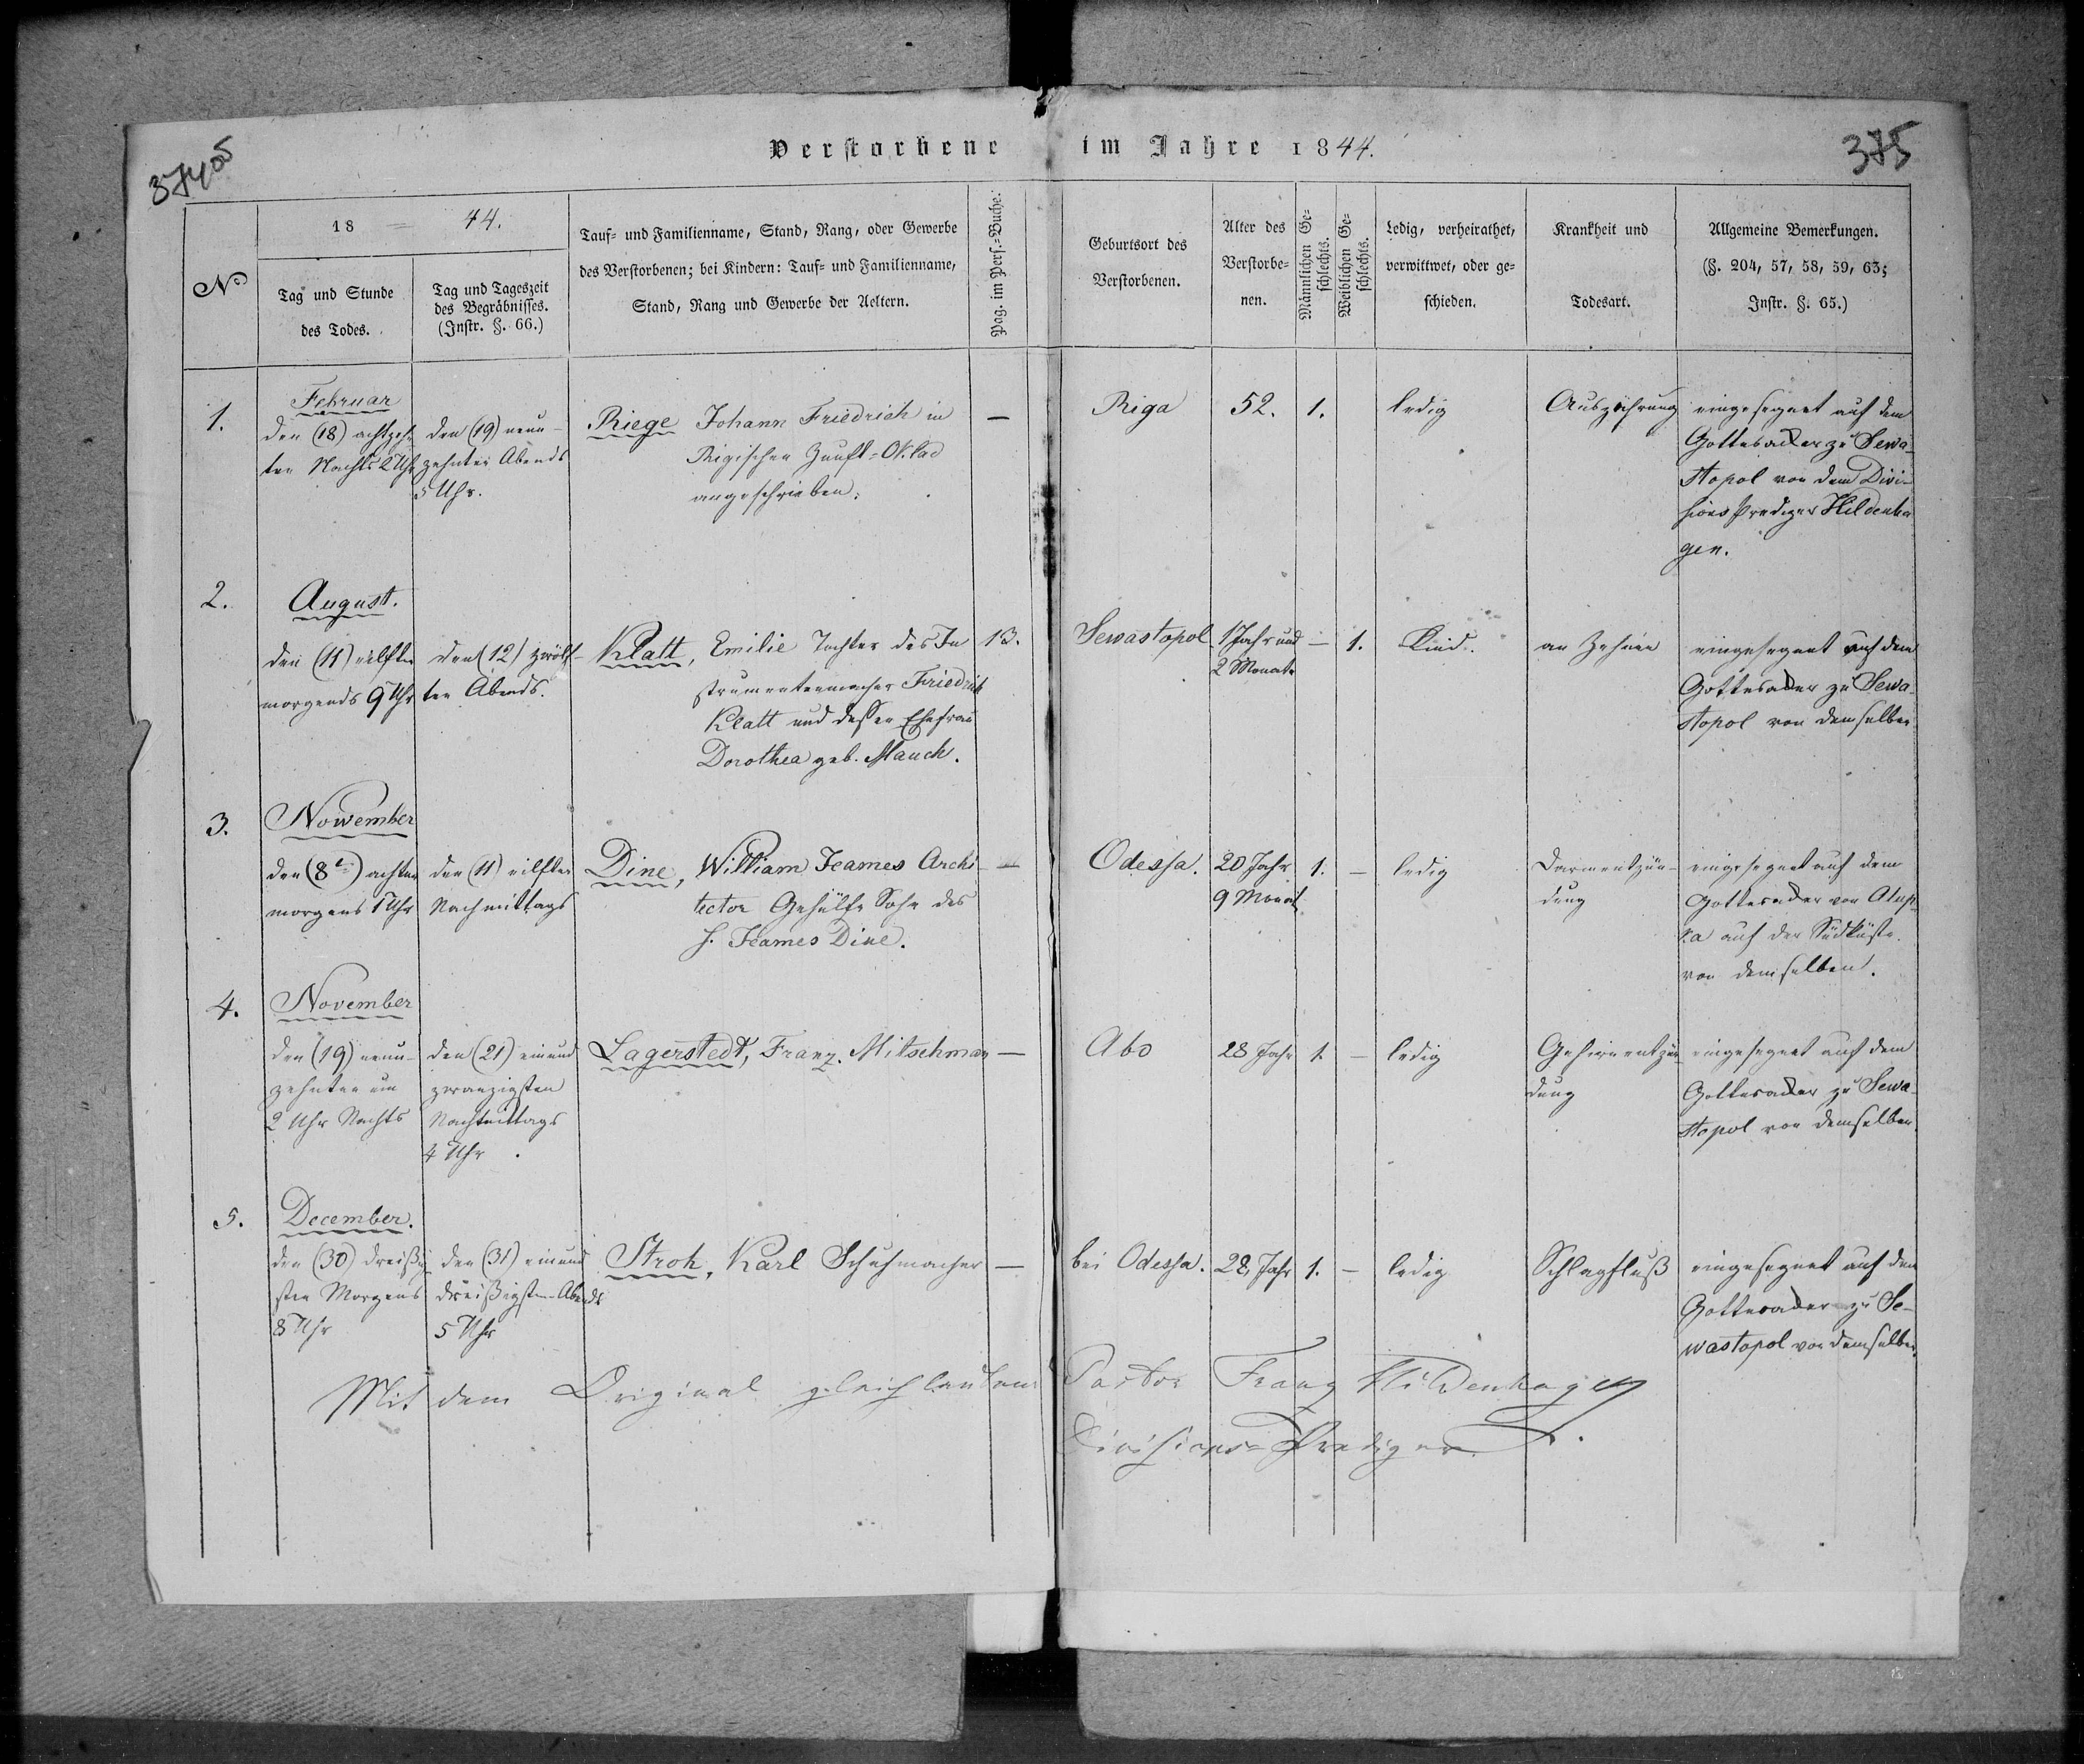 Verstorbene im Jahre 1844.
375
No
18 44.
Tag und Stunde
des Todes.
Tag und Tageszeit
des Begräbnisses.
(Instr. §. 66.)
Tauf- und Familienname, Stand, Rang, oder Gewerbe
des Verstorbenen; bei Kindern: Tauf- und Familienname,
Stand, Rang und Gewerbe der Aeltern.
Pag. im Pers.-Buche.
Geburtsort des
Verstorbenen.
Alter des
Verstorbe-
nen.
Männlichen Ge-
schlechts.
Weiblichen Ge-
schlechts.
Ledig, verheirathet,
verwittwet, oder ge-
schieden.
Krankheit und
Todesart.
Allgemeine Bemerkungen.
(§. 204, 57, 58, 59, 63;
Instr. §. 65.)
1.
Februar
den (18) achtzehn-
ten Nachts 2 Uhr
den (19) neun-
zehnten Abends
5 Uhr.
Riege Johann Friedrich in
Rigischen Zunft-Oklad
angeschrieben.
—
Riga
52.
1.
ledig
Auszehrung
eingesegnet auf dem
Gottesacker zu Sewa-
stopol von dem Divi-
sions Prediger Hildenha
gen.
2.
August.
den (11) eilften
morgends 9 Uhr
den (12) zwölf-
ten Abends.
Klatt, Emilie Tochter des In
strumentenmacher Friedrich
Klatt und dessen Ehefrau
Dorothea geb. Mauch.
13.
Sewastopol
1 Jahr und
2 Monate
—
1.
Kind.
an Zehnen
eingesegnet auf dem
Gottesacker zu Sewa-
stopol von demselben
3.
Nowember
den (8) achten
morgens 1 Uhr
den (11) eilften
Nachmittags
Dine, William Jeames Archi-
tector Gehülfe Sohn des
H. Jeames Dine.
—
Odessa.
20 Jahr
9 Monat
1.
—
ledig
Darmentzün-
dung
eingesegnet auf dem
Gottesacker von Alup-
ka auf der Südküste.
von demselben.
4.
November
den (19) neun-
zehnten um
2 Uhr Nachts
den (21) einund
zwanzigsten
Nachmittags
4 Uhr.
Lagerstedt, Franz. Mitschman
—
Abo
28 Jahr
1.
—
ledig
Gehirnentzün-
dung
eingesegnet auf dem
Gottesacker zu Sewa-
stopol von demselben
5.
December.
den (30) dreißig-
sten Morgens
8 Uhr
den (31) einund
dreißigsten Abends
5 Uhr
Stroh, Karl Schuhmacher
—
bei Odessa.
28 Jahr
1.
—
ledig
Schlagfluß
eingesegnet auf dem
Gottesacker zu Se-
wastopol von demselben.
Mit dem Original gleichlautend Pastor Franz Hildenhagen
Divisions-Prediger